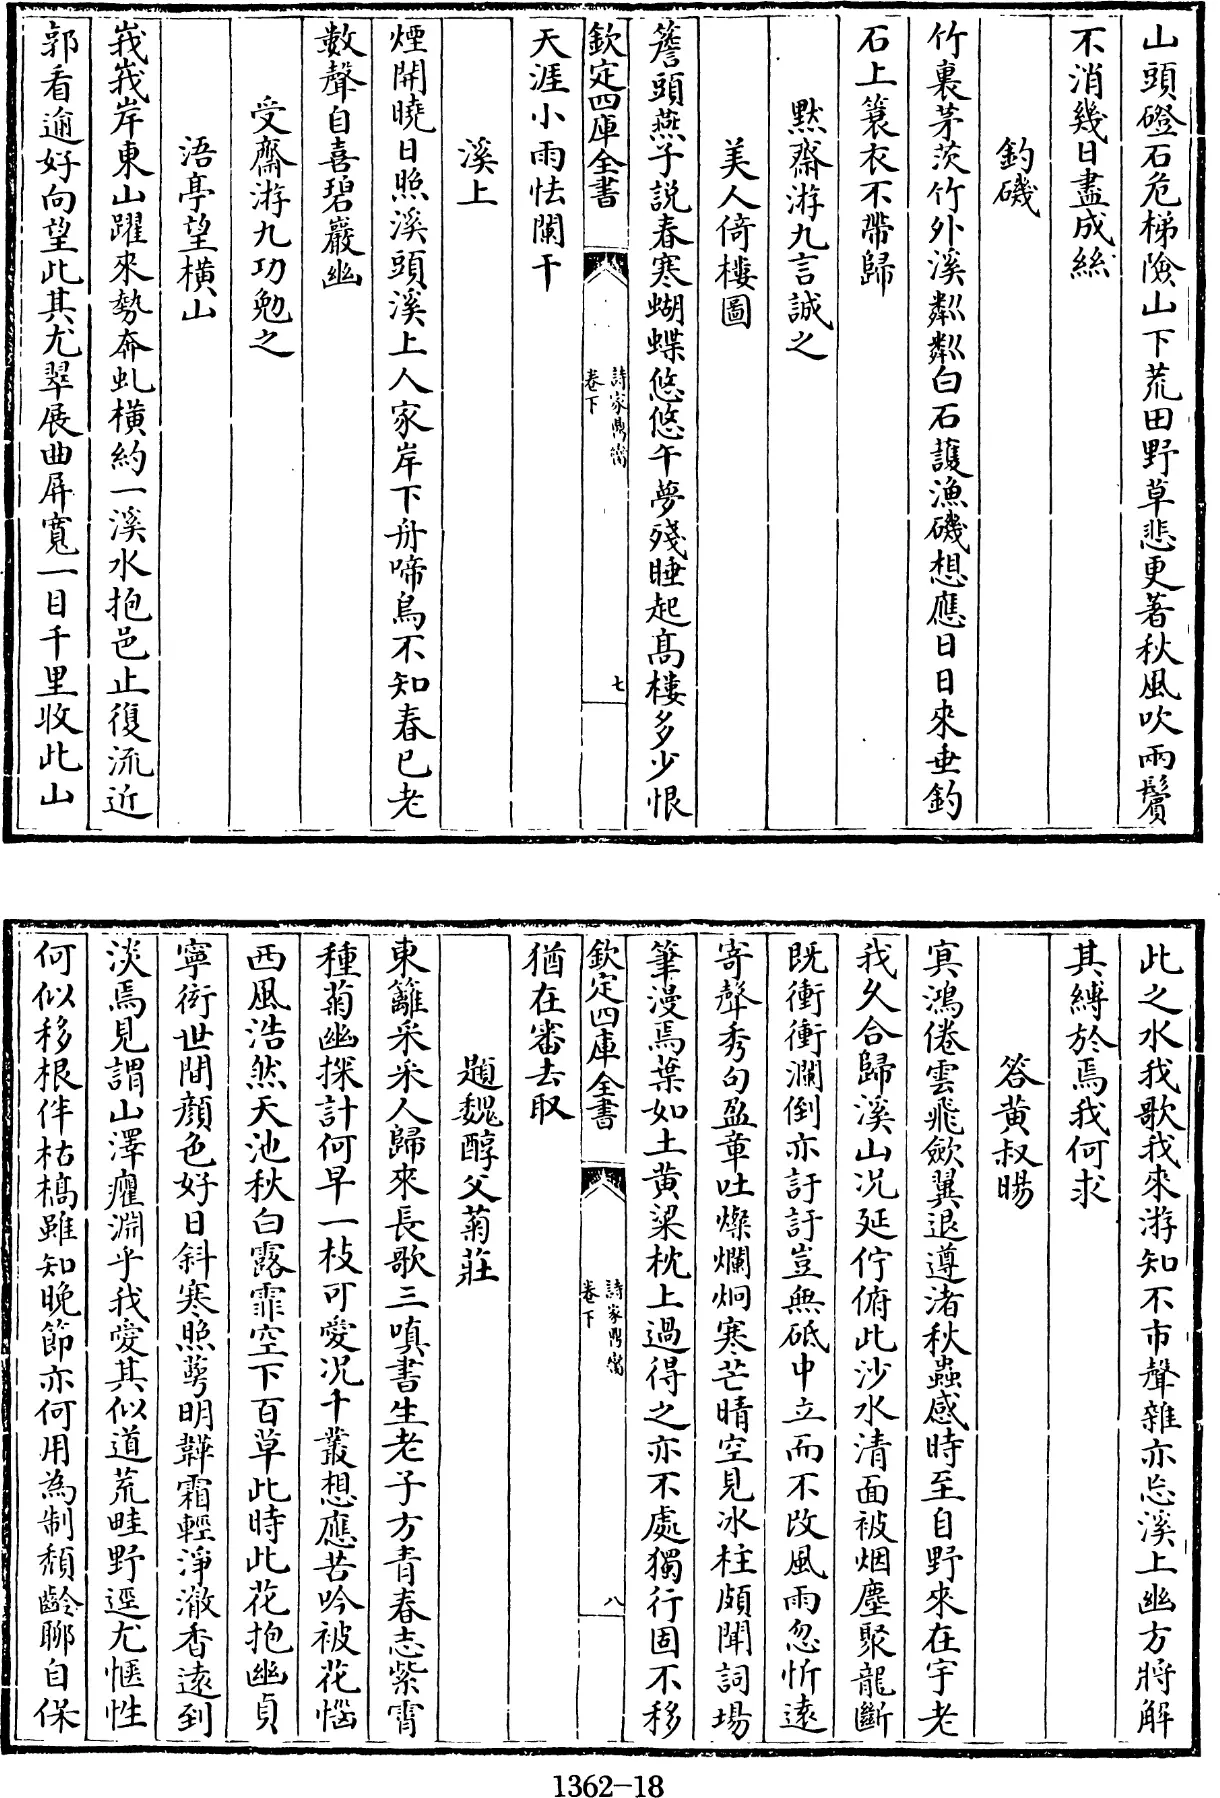 山頭磴石危梯險山下荒田野草悲更著秋風吹兩鬢
不消幾日盡成絲
釣磯
竹裏茅茨竹外溪粼粼白石護漁磯想應日日來垂釣
石上簑衣不帶歸
默齋游九言誠之
美人倚樓圖
簷頭燕子説春寒蝴蝶悠悠午夢殘睡起髙樓多少恨
欽定四庫全書
詩家鼎臠
卷下
七
天涯小雨怯闌干
溪上
煙開曉日照溪頭溪上人家岸下舟啼鳥不知春已老
數聲自喜碧巖幽
受齋游九功勉之
浯亭望橫山
峩峩岸東山躍來勢奔虬橫約一溪水抱邑止復流近
郭看逾好向望此其尤翠展曲屏寛一目千里收此山
此之水我歌我來游知不市聲雜亦忘溪上幽方將解
其縛於焉我何求
答黄叔暘
寘鴻倦雲飛歛翼退遵渚秋蟲感時至自野來在宇老
我久合歸溪山况延佇俯此沙水清面被烟塵聚龍斷
既衝衝瀾倒亦訏訏豈無砥中立而不改風雨忽忻遠
寄聲秀句盈章吐燦爛炯寒芒晴空見冰柱頗聞詞場
筆漫焉葉如土黄粱枕上過得之亦不處獨行固不移
欽定四庫全書
詩家鼎臠
卷下
八
猶在審去取
題魏醇父菊莊
東籬采采人歸來長歌三嗅書生老子方青春志紫霄
種菊幽探計何早一枝可愛况千叢想應苦吟被花惱
西風浩然天池秋白露霏空下百草此時此花抱幽貞
寧衒世間顔色好日斜寒照蕚明韡霜輕淨澈香遠到
淡焉見謂山澤癯淵乎我愛其似道荒畦野逕尤愜性
何似移根伴枯槁雖知晚節亦何用為制頽齡聊自保
1362-18